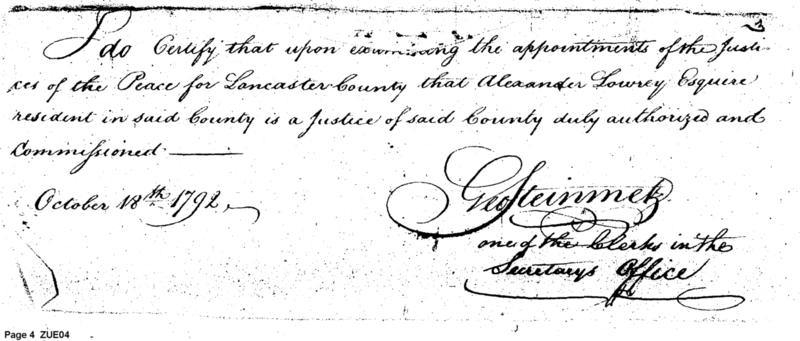 3
I do Certify that upon examining the appointments of the Justi-
ces of the Peace for Lancaster County that Alexander Lowrey Esquire
resident in said County is a Justice of said County duly authorized and
Commissioned ——
October 18th 1792,
Geo Steinmetz
one of the Clerks in the
Secretarys Office
Page 4 ZUE04